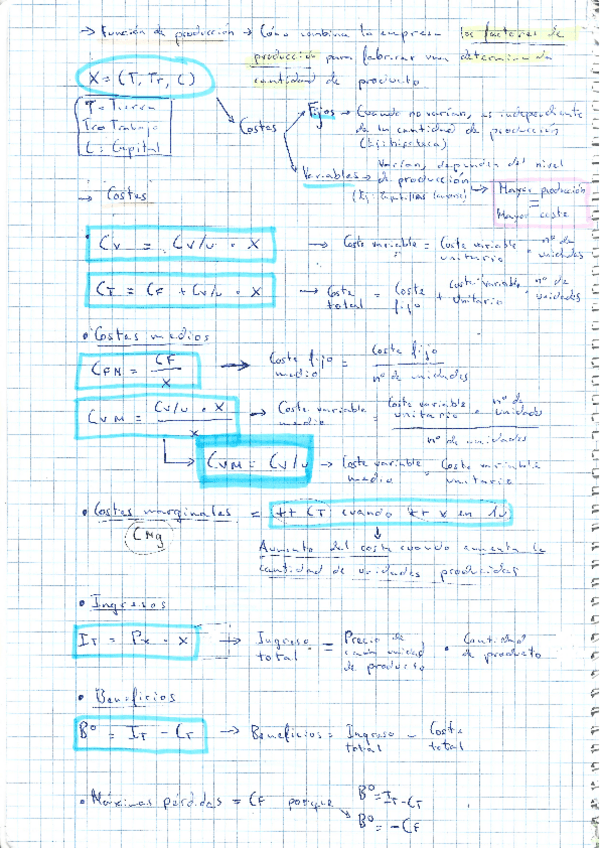 → Función de producción → Cómo combina la empresa los factores de
producción para fabricar una determinada
cantidad de producto
X = (T, Tr, C)
T = Tierra
Tr = Trabajo
C = Capital
Costes
Fijos → Cuando no varían, es independiente
de la cantidad de producción
(Ej: hipoteca)
Variables → Varían, dependen del nivel
de producción
Mayor producción
=
Mayor coste
→ Costes
Cv = Cv/u · X → Coste variable = Coste variable unitario · nº de unidades
CT = CF + Cv/u · X → Coste total = Coste fijo + Coste variable unitario · nº de unidades
• Costes medios
CFM = CF / X → Coste fijo medio = Coste fijo / nº de unidades
CVM = Cv/u · X / X → Coste variable medio = Coste variable unitario · nº de unidades / nº de unidades
CVM = Cv/u → Coste variable medio = Coste variable unitario
• Costes marginales = ↑↑ CT cuando ↑↑ X en 1u
CMg
Aumento del coste cuando aumenta la
cantidad de unidades producidas
• Ingresos
IT = Px · X → Ingreso total = Precio de cada unidad de producto · Cantidad de producto
• Beneficios
Bº = IT - CT → Beneficios = Ingreso total - Coste total
• Máximas pérdidas = CF porque
Bº = IT - CT
Bº = -CF